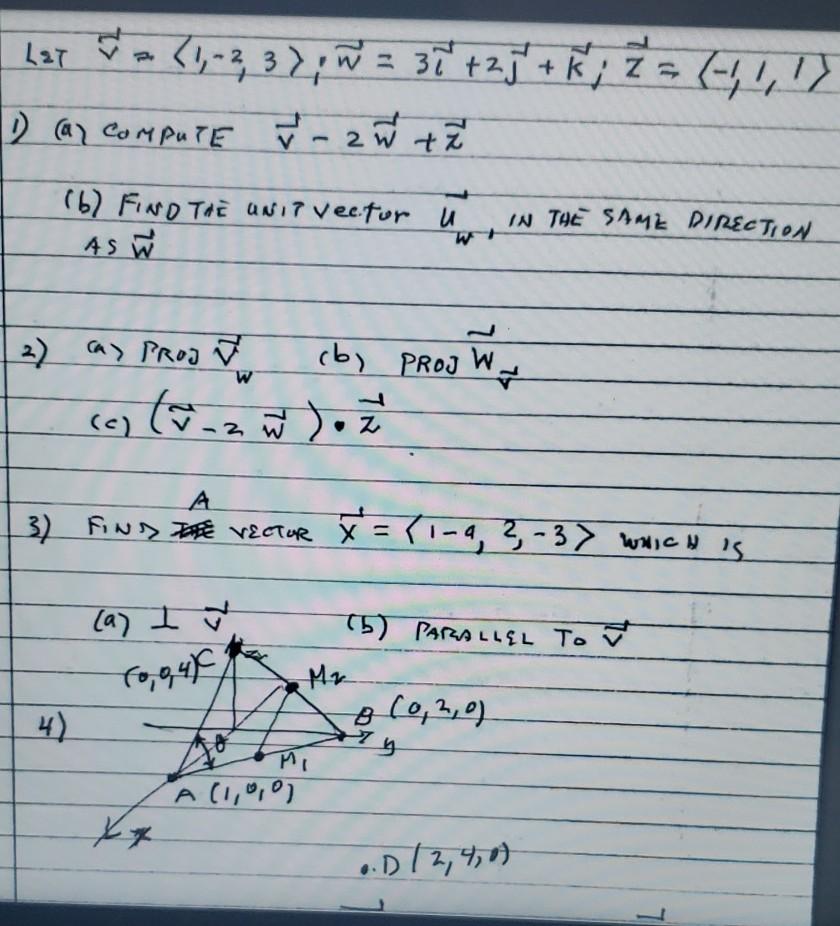 LET v⃗ = ⟨1, -2, 3⟩; w⃗ = 3i⃗ + 2j⃗ + k⃗; z⃗ = ⟨-1, 1, 1⟩
1) (a) COMPUTE v⃗ - 2w⃗ + z⃗
(b) FIND THE UNIT Vector u⃗_w, IN THE SAME DIRECTION
AS w⃗
2) (a) PROJ v⃗_w (b) PROJ w⃗_v⃗
(c) (v⃗ - 2w⃗) • z⃗
A
3) FIND THE VECTOR x⃗ = ⟨1-a, 2, -3⟩ WHICH IS
(a) ⊥ v⃗ (b) PARALLEL TO v⃗
(0,0,4) C z
M2
4) B (0,2,0)
θ y
M1
A (1,0,0)
x
D (2,4,0)